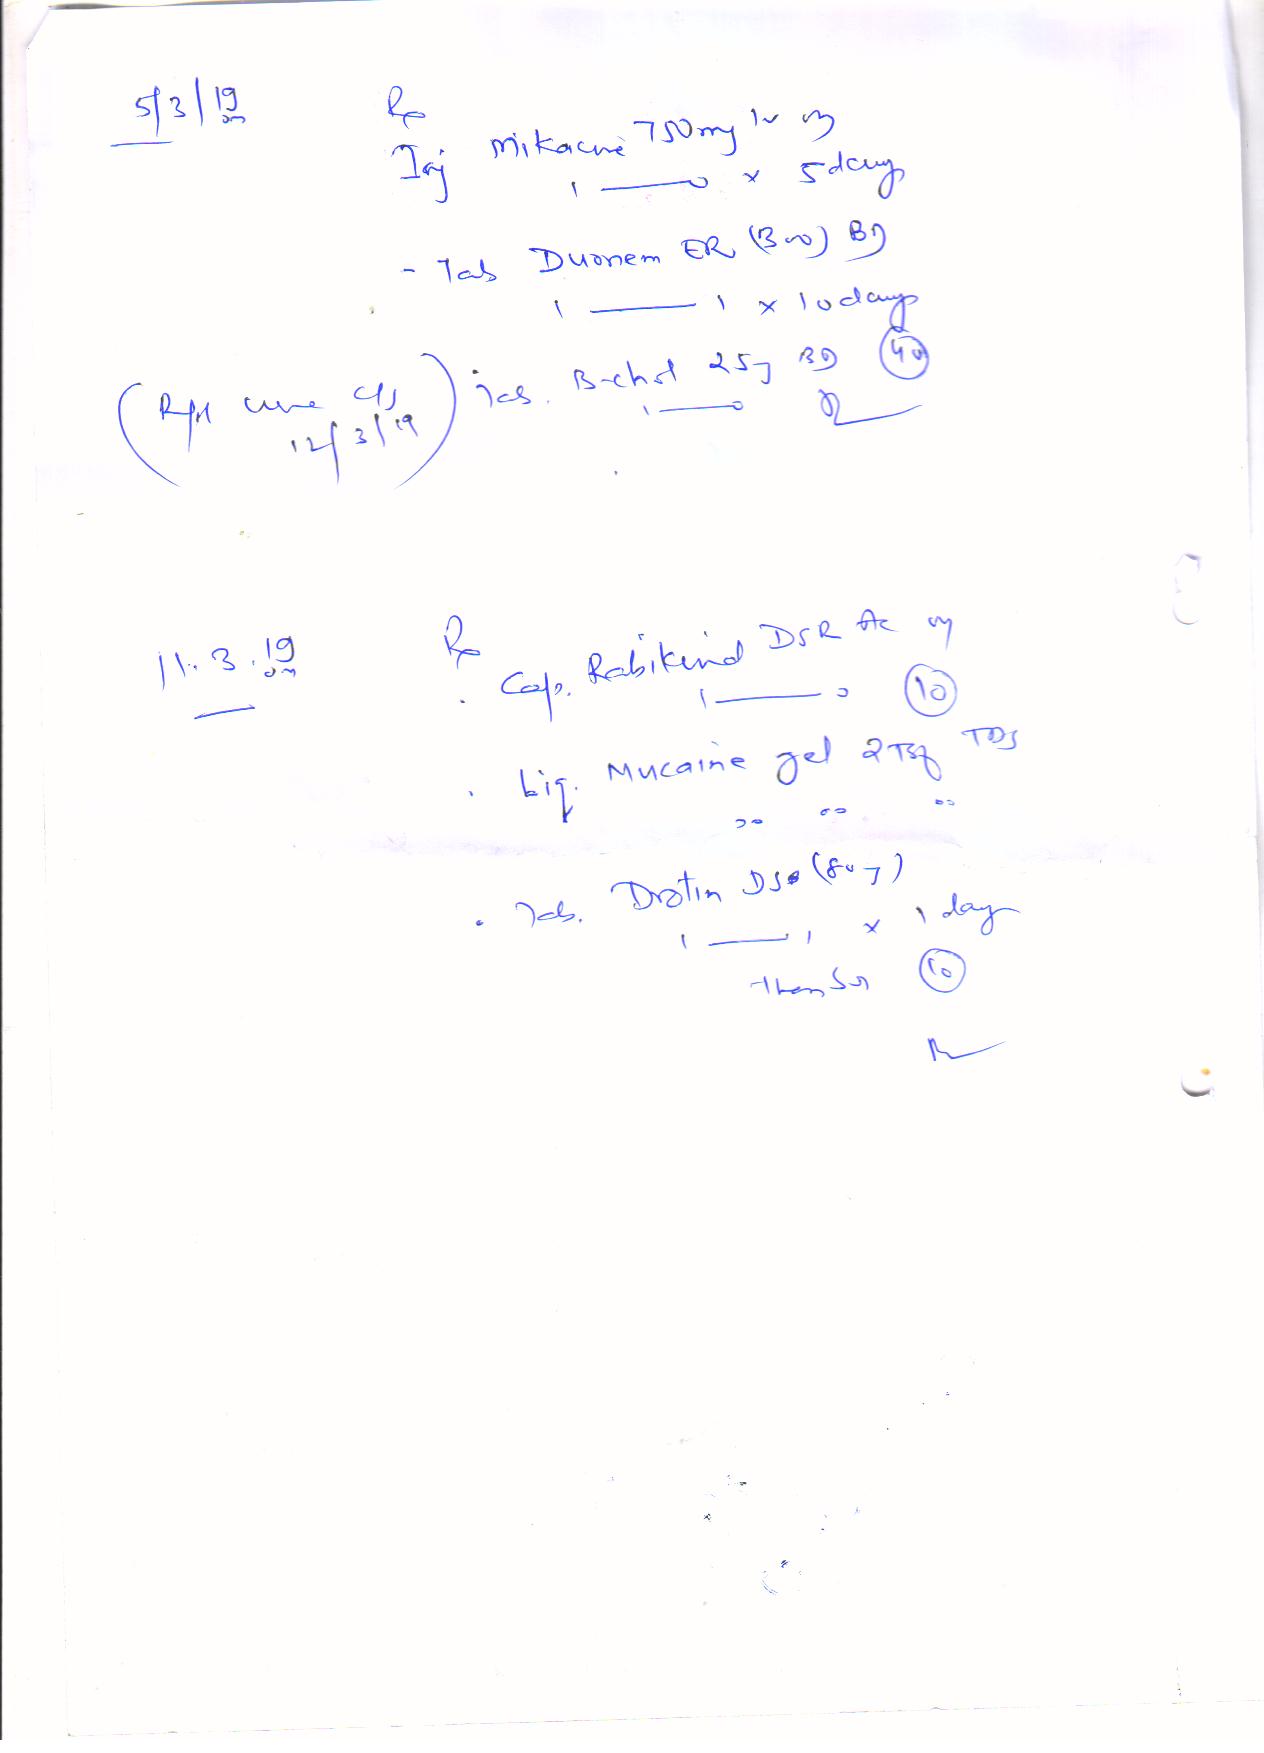 5/3/19
Rx
Inj Mikacine 750mg IV
1 —— 0 x 5 days
- Tab Duonem ER (300) BD
1 —— 1 x 10 days
Tab. 25 BD (40)
1 —— 0
(Rpt urine C/S
12/3/19)
11.3.19
Rx
. Cap. Rabikind DSR AC
1 —— 0 (10)
. Liq. Mucaine gel 2 TSF TDS
. Tab. Drotin DS (80)
1 —— 1 x 1 day
then SOS (10)